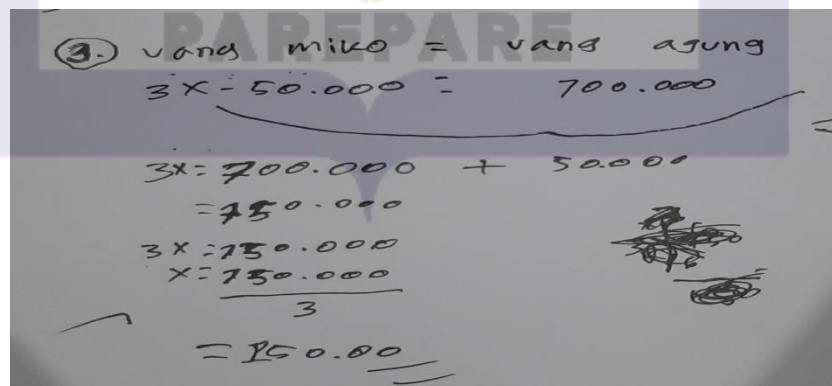 PAREPARE
3. uang miko = uang agung
3x - 50.000 = 700.000
3x = 700.000 + 50.000
= 750.000
3x = 750.000
x = 750.000
3
= 250.00